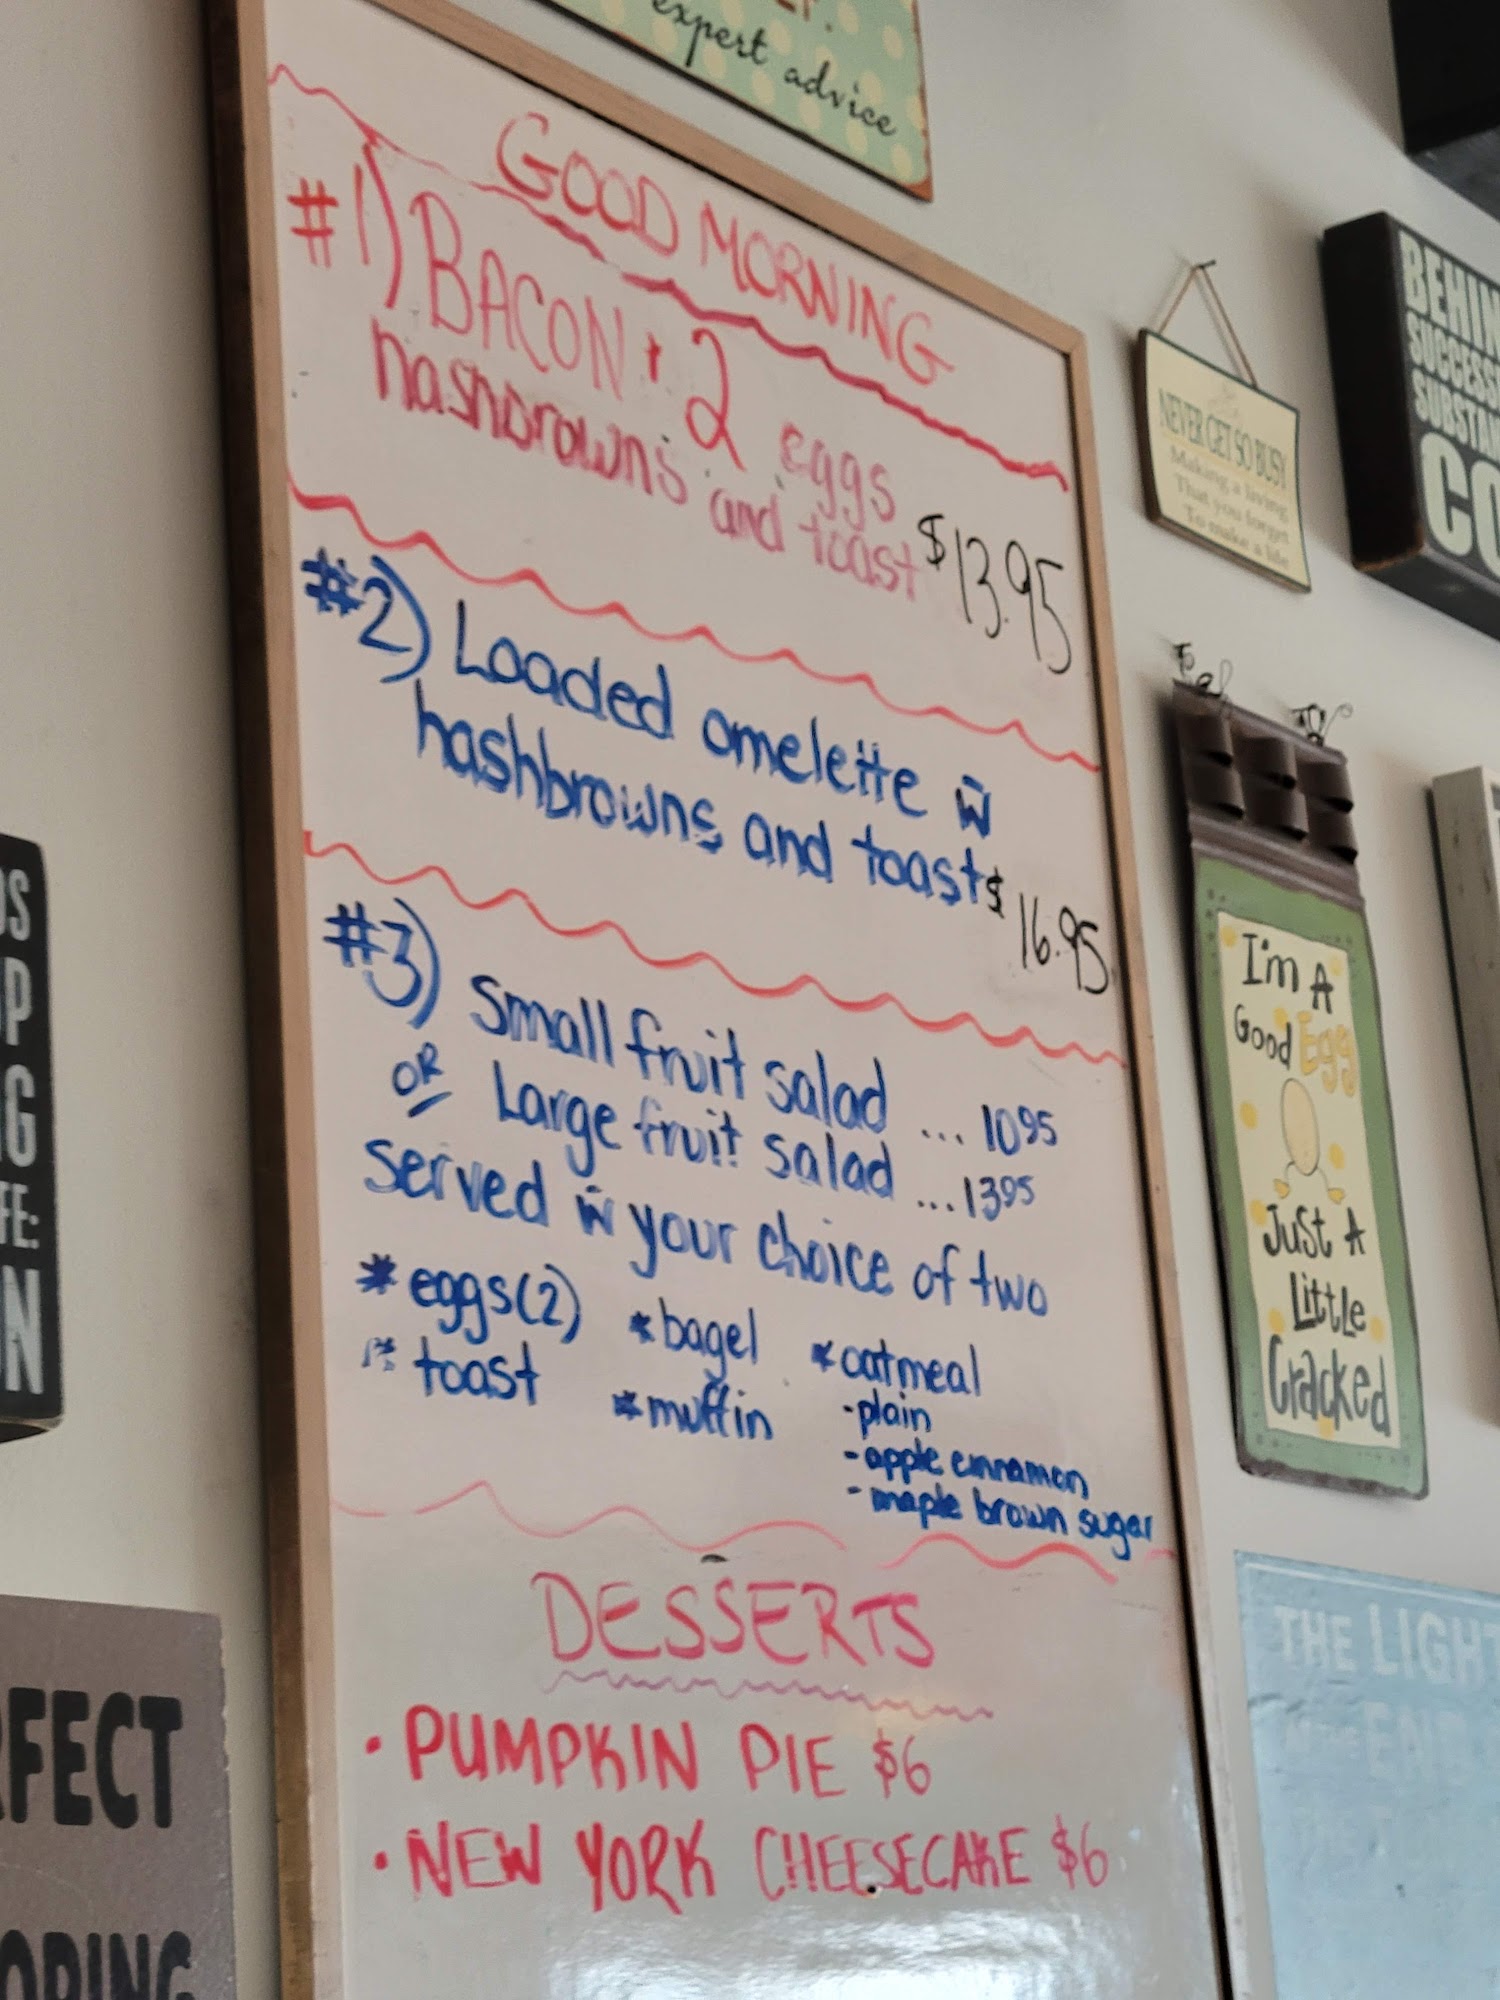 expert advice
GOOD MORNING
#1) BACON + 2 eggs
hashbrowns and toast $13.95
#2) Loaded omelette w
hashbrowns and toast $16.95
#3) Small fruit salad ... 10 95
OR Large fruit salad ... 13 95
served w your choice of two
* eggs (2) * bagel * oatmeal
* toast * muffin - plain
- apple cinnamon
- maple brown sugar
DESSERTS
• PUMPKIN PIE $6
• NEW YORK CHEESECAKE $6
NEVER GET SO BUSY
Making a living
That you forget
To make a life
BEHIN
SUCCESS
SUBSTAN
CO
I'm A
Good Egg
Just A
Little
Cracked
THE LIGHT
END
OS
UP
NG
FE:
ON
RFECT